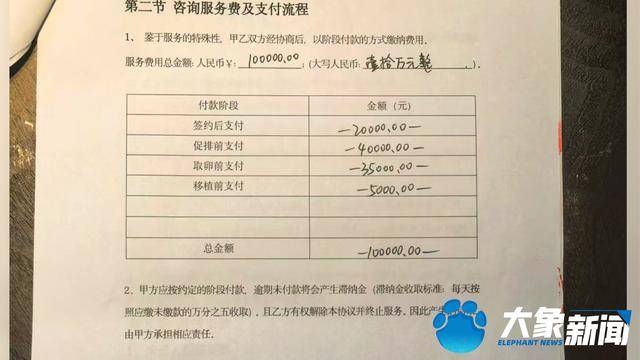 第二节 咨询服务费及支付流程
1、鉴于服务的特殊性，甲乙双方经协商后，以阶段付款的方式缴纳费用。
服务费用总金额：人民币￥：100000.00；(大写人民币：壹拾万元整).
付款阶段 金额（元）
签约后支付 —20000.00—
促排前支付 —40000.00—
取卵前支付 —35000.00—
移植前支付 —5000.00—
总金额 —100000.00—
2、甲方应按约定的阶段付款，逾期未付款将会产生滞纳金（滞纳金收取标准：每天按
照应缴未缴款的万分之五收取），且乙方有权解除本协议并终止服务，因此产生
由甲方承担相应责任。
大象新闻
ELEPHANT NEWS